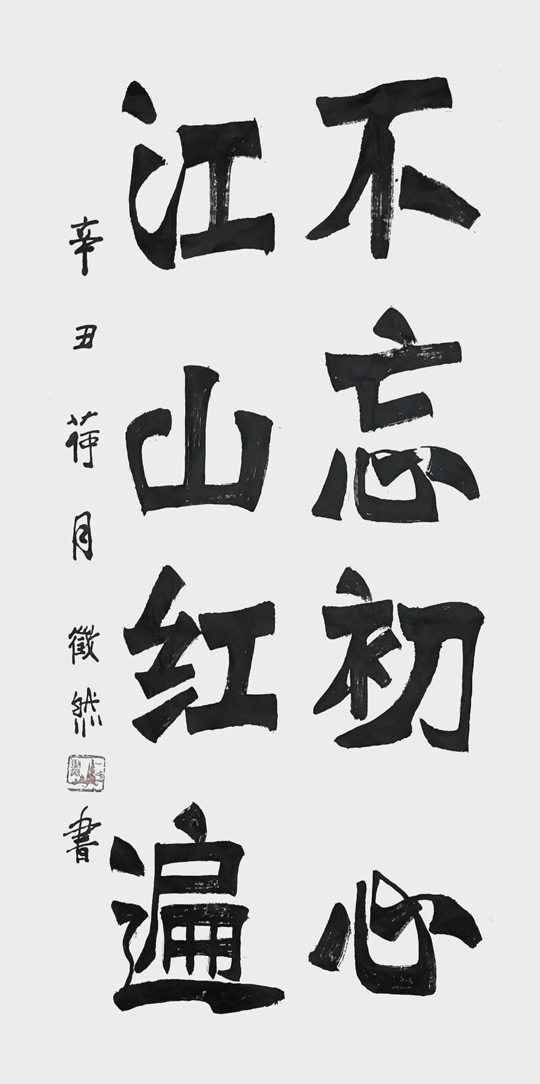 不忘初心
江山红遍
辛丑荷月徵然書